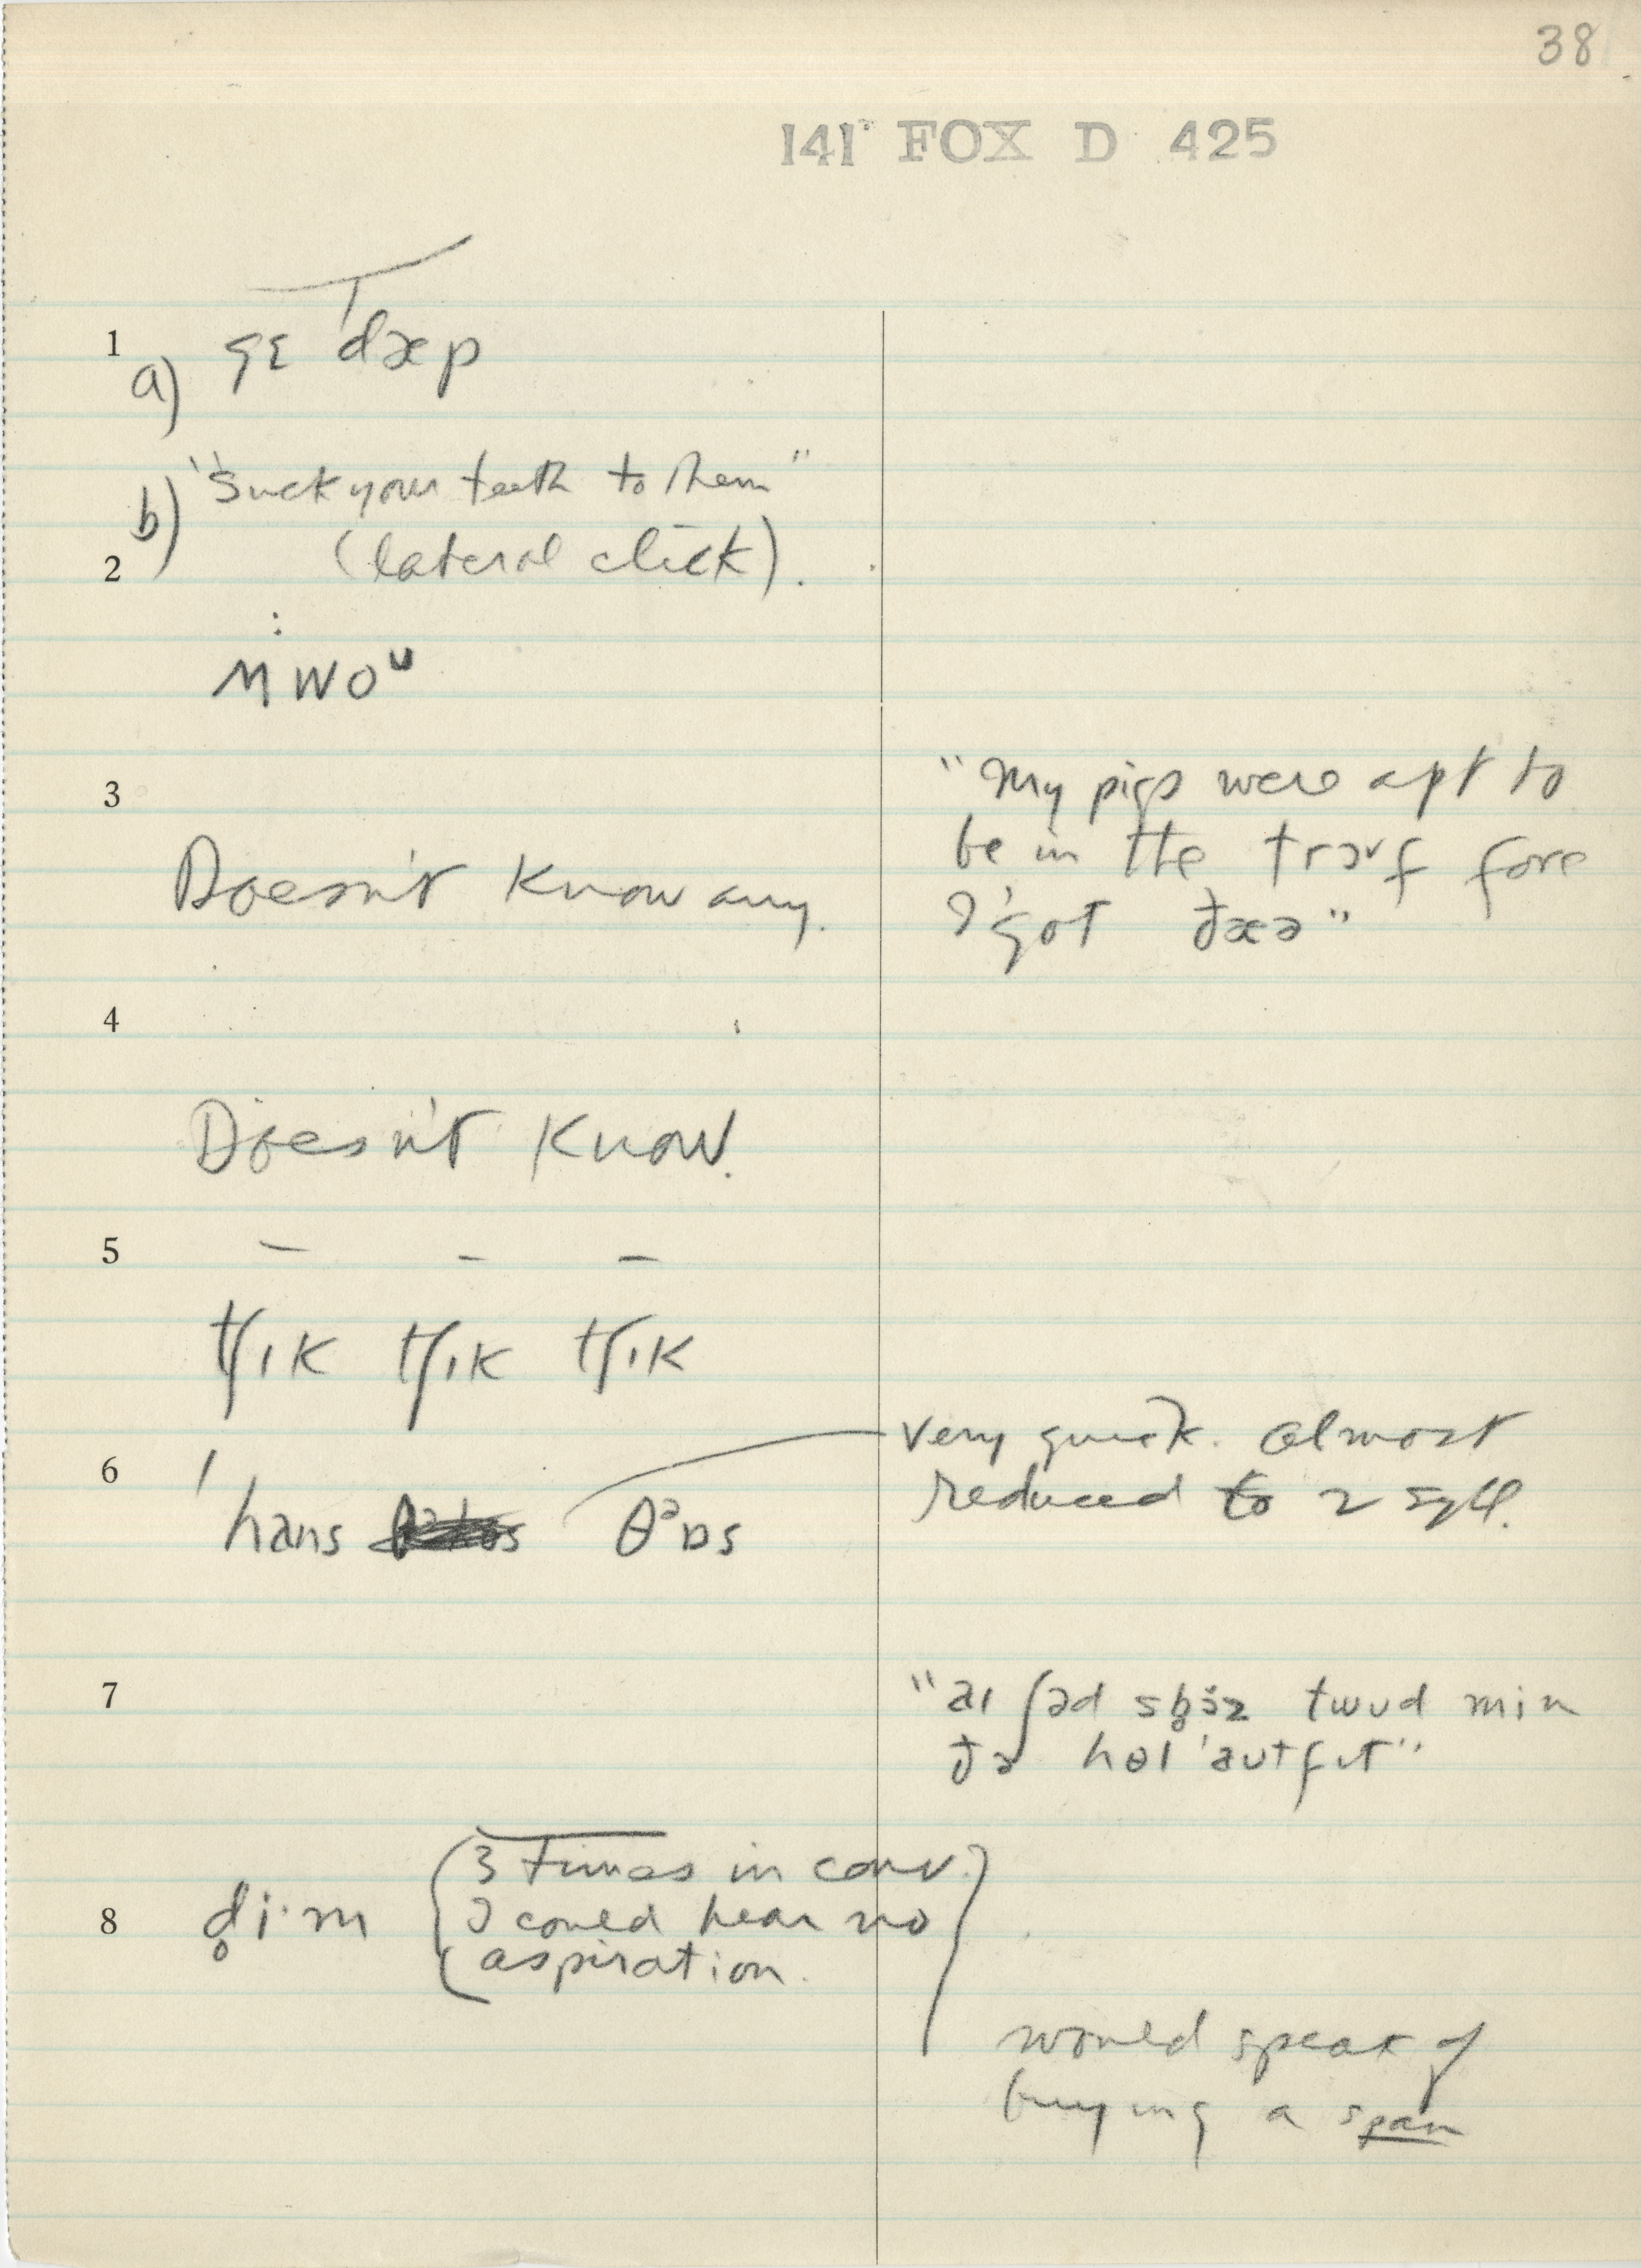 38
141 FOX D 425
1
a) gɛ dæp
b) "Suck your teeth to them"
2 (lateral click).
MWOᵁ
3 "My pigs were apt to
be in the trɔvf fore
Doesn't know any.
I got ðæə"
4
Doesn't know.
5
tʃɪk tʃɪk tʃɪk
6 very quick. Almost
reduced to 2 syll.
hɑns θᵊɒs
7 "aɪ ʃəd sb̥ɔ́z twud min
ðə hɵl 'autfɪt"
8 d̥i·m (3 times in conv.
I could hear no
aspiration.)
would speak of
buying a span